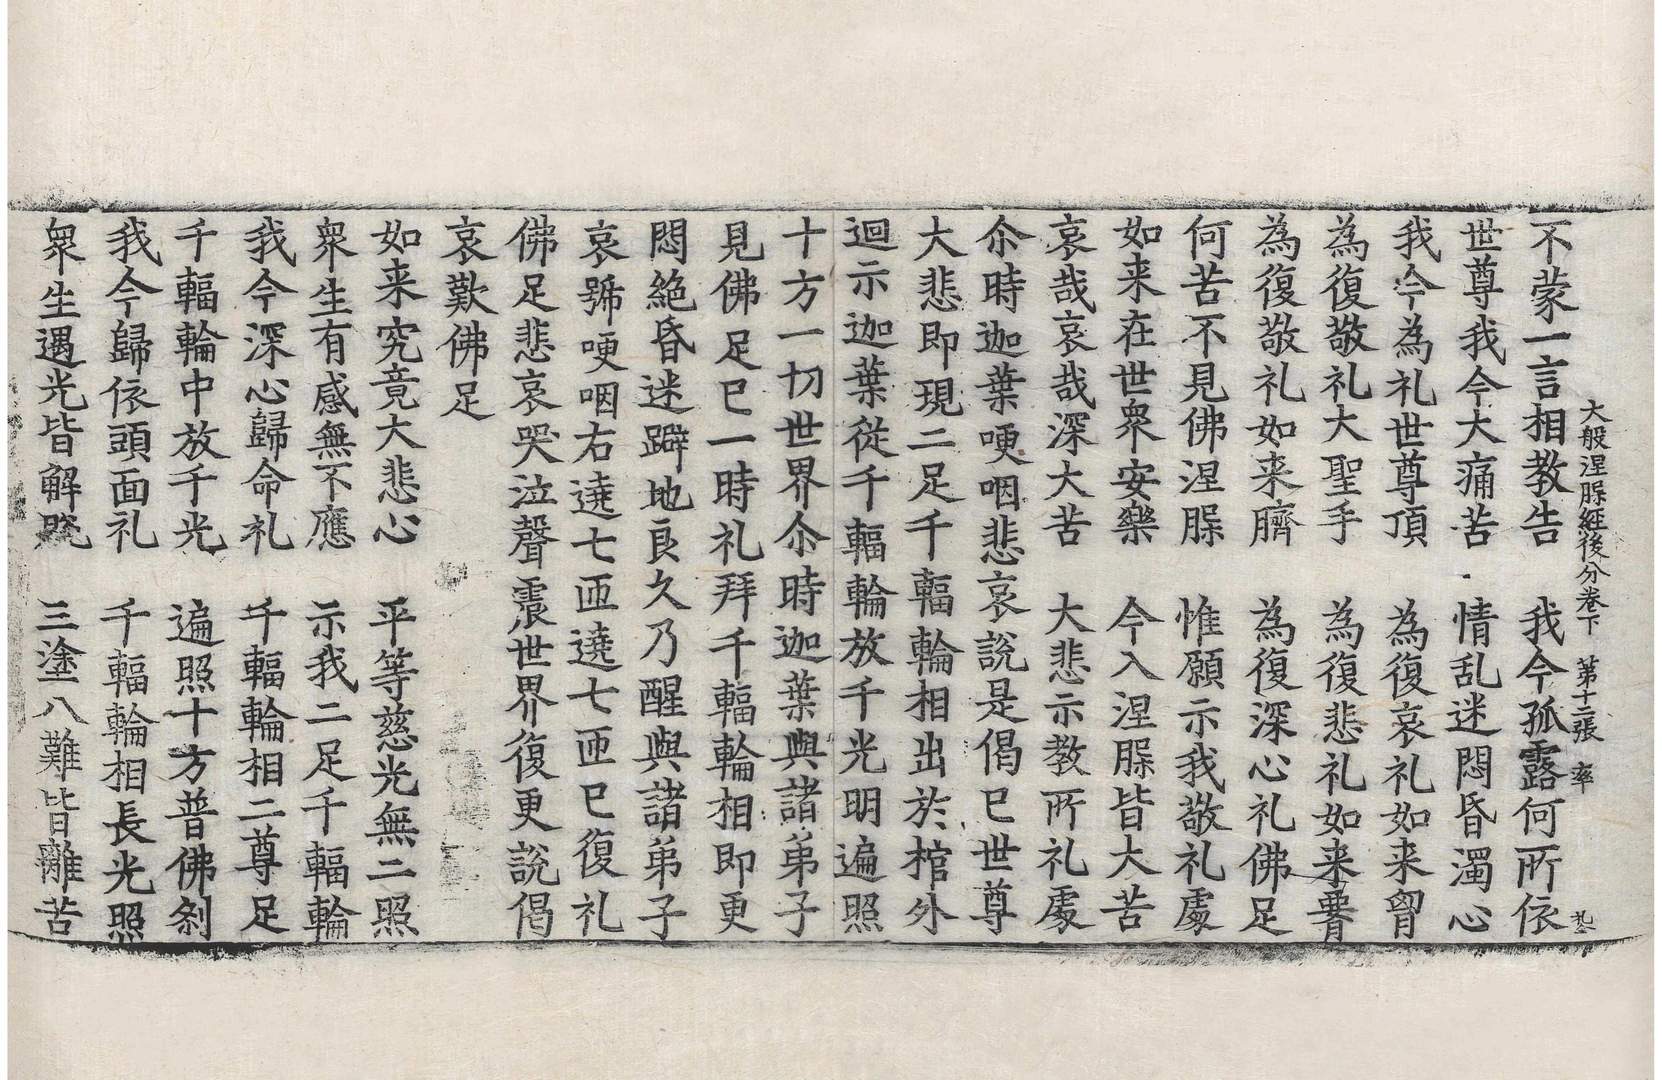 大般涅脲經後分卷下　第十二張　率
不蒙一言相教告　我今孤露何所依
世尊我今大痛苦　情乱迷悶昏濁心
我今為礼世尊頂　為復哀礼如来胷
為復敬礼大聖手　為復悲礼如来䯗
為復敬礼如来臍　為復深心礼佛足
何苦不見佛涅脲　惟願示我敬礼處
如来在世衆安樂　今入涅脲皆大苦
哀哉哀哉深大苦　大悲示教所礼處
尒時迦葉哽咽悲哀說是偈已世尊
大悲即現二足千輻輪相出於棺外
迴示迦葉従千輻輪放千光明遍照
十方一切世界尒時迦葉與諸弟子
見佛足已一時礼拜千輻輪相即更
悶絶昏迷躃地良久乃醒與諸弟子
哀號哽咽右遶七匝遶七匝已復礼
佛足悲哀哭泣聲震世界復更說偈
哀歎佛足
如来究竟大悲心　平等慈光無二照
衆生有感無不應　示我二足千輻輪
我今深心歸命礼　千輻輪相二尊足
千輻輪中放千光　遍照十方普佛剎
我今歸依頭面礼　千輻輪相長光照
衆生遇光皆解脫　三塗八難皆離苦